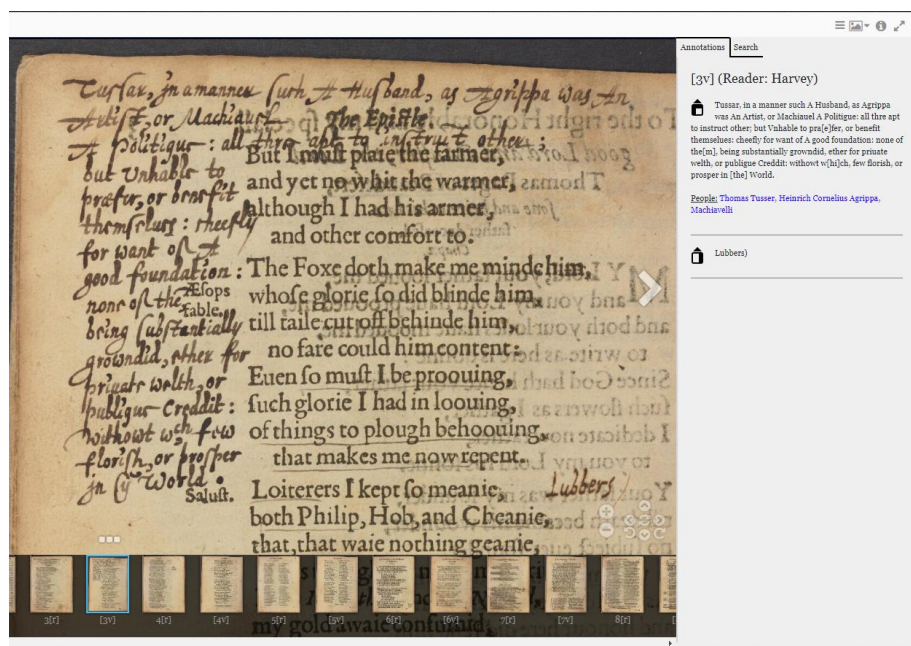 Tussar, in a manner such A Husband, as Agrippa was An
Artist, or Machiauel
A Politique: all thre apt to instruct other;
but Vnhable to
præfer, or benefit
themselues: cheefly
for want of A
good foundation:
none of the
being substantially
growndid, ether for
priuate welth, or
publique Creddit:
withowt wch few
florish, or prosper
in ye World.
The Epiſtle.
But I muſt plaie the farmer,
and yet no whit the warmer,
although I had his armer,
and other comfort to.
Æſops
fable.
The Foxe doth make me minde him,
whoſe glorie ſo did blinde him,
till taile cut off behinde him,
no fare could him content:
Euen ſo muſt I be proouing,
ſuch glorie I had in loouing,
of things to plough behoouing,
that makes me now repent.
Saluſt.
Loiterers I kept ſo meanie,
Lubbers)
both Philip, Hob, and Cheanie,
that, that waie nothing geanie,
my gold awaie conſumid,
3[r]
[3v]
4[r]
[4v]
5[r]
[5v]
6[r]
[6v]
7[r]
[7v]
8[r]
Annotations
Search
[3v] (Reader: Harvey)
Tussar, in a manner such A Husband, as Agrippa
was An Artist, or Machiauel A Politique: all thre apt
to instruct other; but Vnhable to pra[e]fer, or benefit
themselues: cheefly for want of A good foundation: none of
the[m], being substantially growndid, ether for private
welth, or publigue Creddit: withowt w[hi]ch, few florish, or
prosper in [the] World.
People: Thomas Tusser, Heinrich Cornelius Agrippa,
Machiavelli
Lubbers)